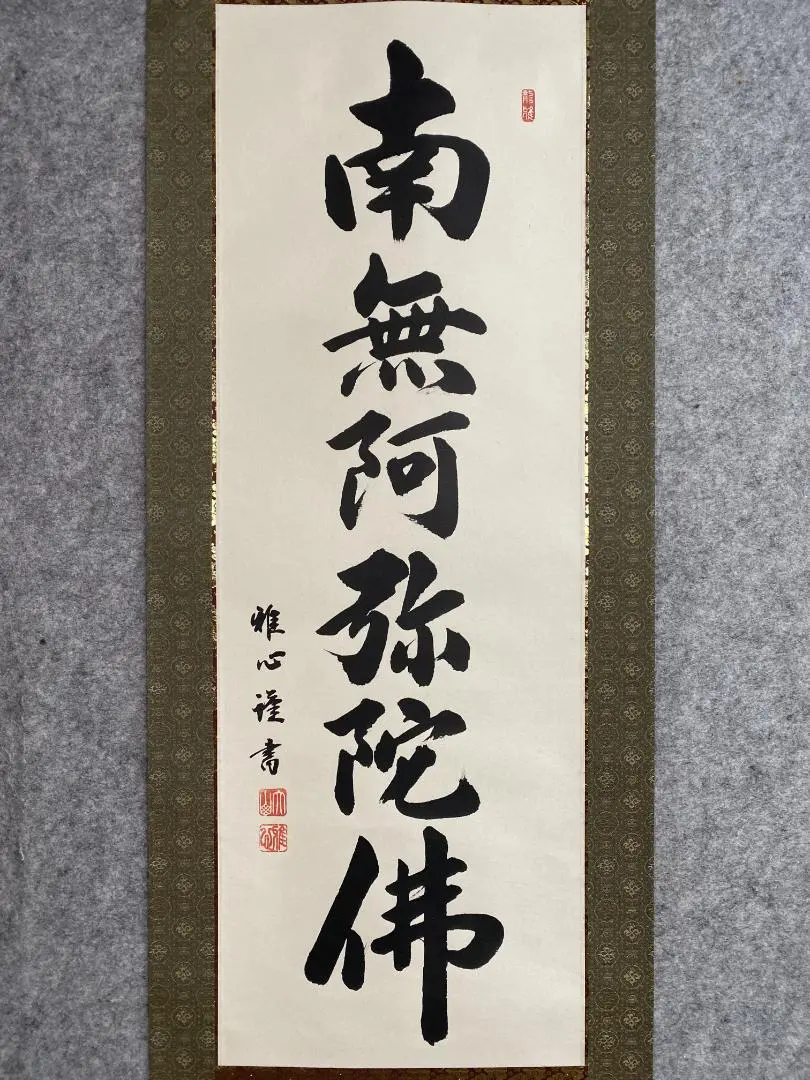 南無阿弥陀佛
雅心謹書